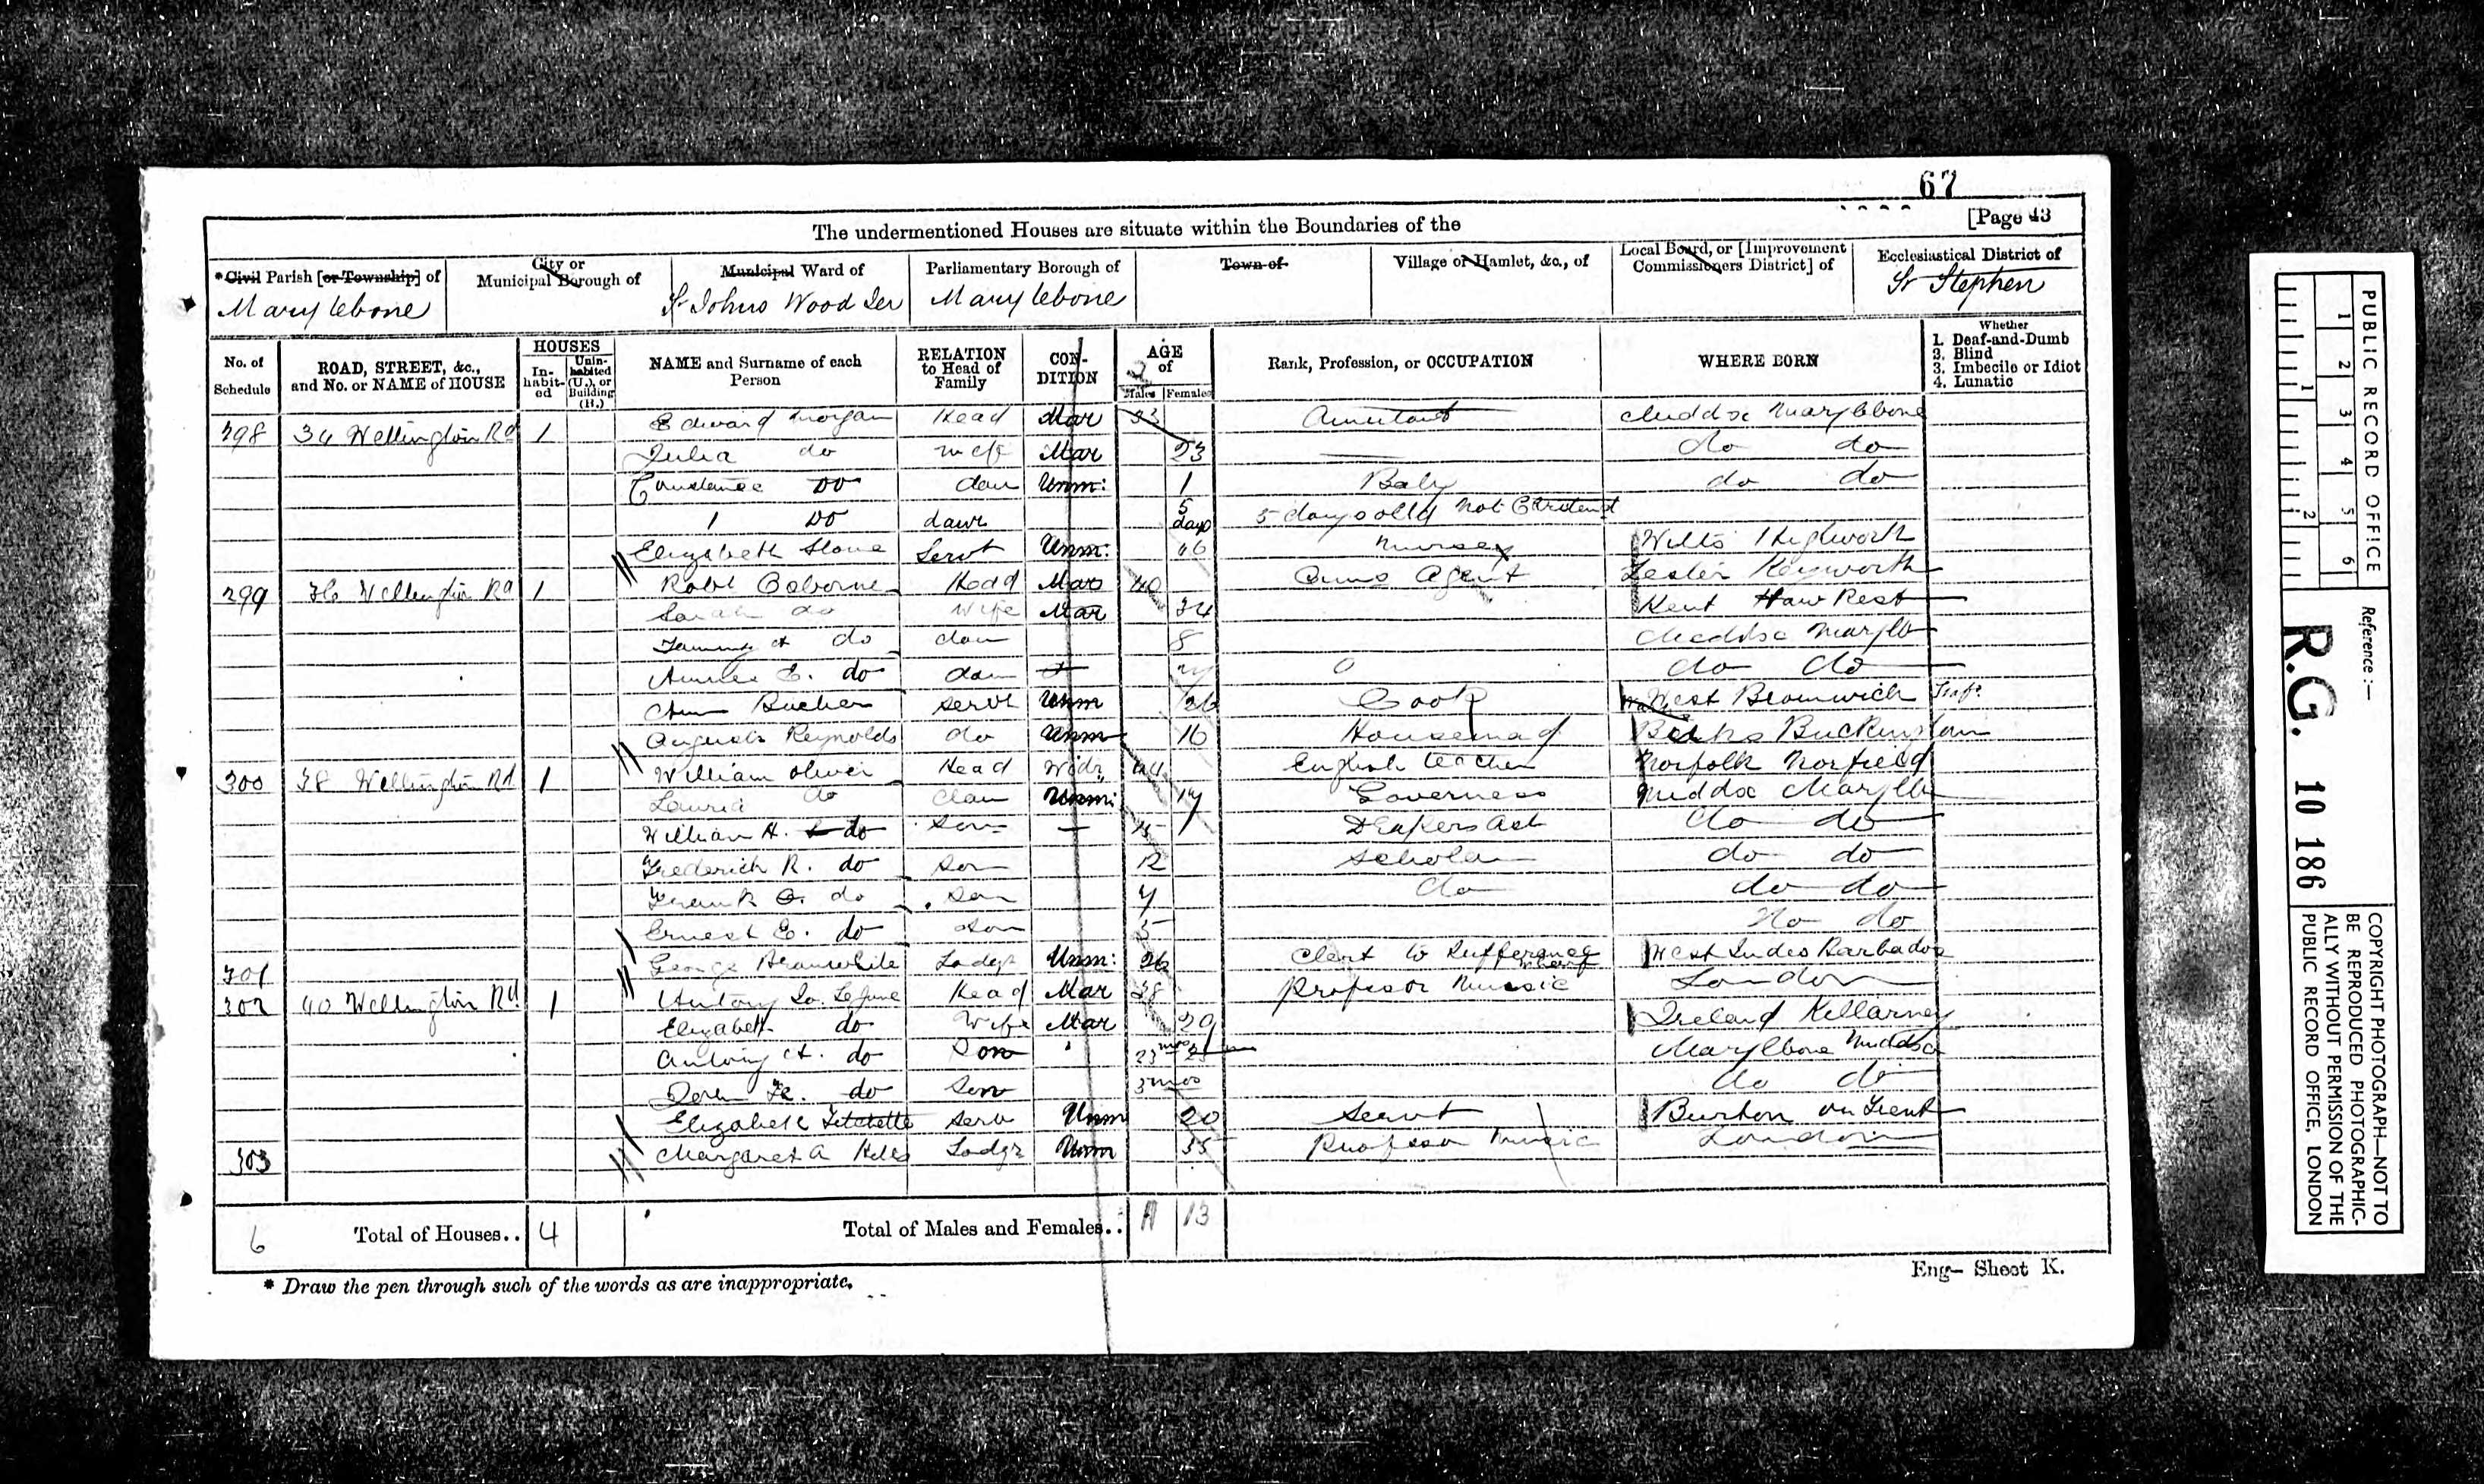 67
[Page 43
The undermentioned Houses are situate within the Boundaries of the
*Civil Parish [or Township] of
City or Municipal Borough of
Municipal Ward of
Parliamentary Borough of
Town of
Village or Hamlet, &c., of
Local Board, or [Improvement Commissioners District] of
Ecclesiastical District of
Marylebone St Johns Wood Ter Marylebone St Stephen
No. of Schedule
ROAD, STREET, &c., and No. or NAME of HOUSE
HOUSES
In-habit-ed
Unin-habited (U.), or Building (B.)
NAME and Surname of each Person
RELATION to Head of Family
CON-DITION
AGE of
Males Females
Rank, Profession, or OCCUPATION
WHERE BORN
Whether
1. Deaf-and-Dumb
2. Blind
3. Imbecile or Idiot
4. Lunatic
298 34 Wellington Rd 1 Edward Morgan Head Mar 33 Middsx Marylebone
Julia do wife Mar 23 do do
Constance Do dau Unm: 1 Baby do do
1 Do daur 5 days 5 days old not
Elizabeth Servt Unm: Nurse Wilts Highworth
299 36 Wellington Rd 1 Robt Osborne Head Mar 40 Agent
Sarah do Wife Mar 34 Kent Hawkest
do dau 8 Middsx Maryleb
Annie E. do dau do do
Ann Servt Unm 26 Cook West Bromwich
Augusta Reynolds do Unm 16 Housemad Bucks Buckingham
300 38 Wellington Rd 1 William Oliver Head Widr 44 English teacher Norfolk
do dau Unm: 17 Governess Middsx Maryleb
William H. do Son Drapers Ast do do
Frederick R. do Son 12 Scholar do do
Frank do Son do do do
Ernest E. do Son 5 do do
301 George Lodgr Unm: 26 Clerk to Sufferance Wharf West Indes Barbados
302 40 Wellington Rd 1 Antony Head Mar 38 Profesor Music London
Elizabeth do Wife Mar 29 Ireland Killarney
do Son 23 mos Marylbone Middsx
do Son 3 mos do do
Elizabeth Serv Unm 20 Servt Burton on Trent
303 Margaret A Lodgr Unm 35 Professor Music London
6 Total of Houses.. 4 Total of Males and Females.. 11 13
* Draw the pen through such of the words as are inappropriate.
Eng- Sheet K.
PUBLIC RECORD OFFICE
1 2 3 4 5 6
1 2
Reference :-
R.G. 10 186
COPYRIGHT PHOTOGRAPH—NOT TO
BE REPRODUCED PHOTOGRAPHIC-
ALLY WITHOUT PERMISSION OF THE
PUBLIC RECORD OFFICE, LONDON